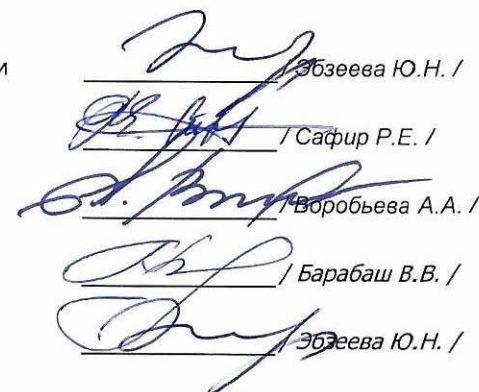 и / Эбзеева Ю.Н. /
/ Сафир Р.Е. /
/ Воробьева А.А. /
/ Барабаш В.В. /
/ Эбзеева Ю.Н. /